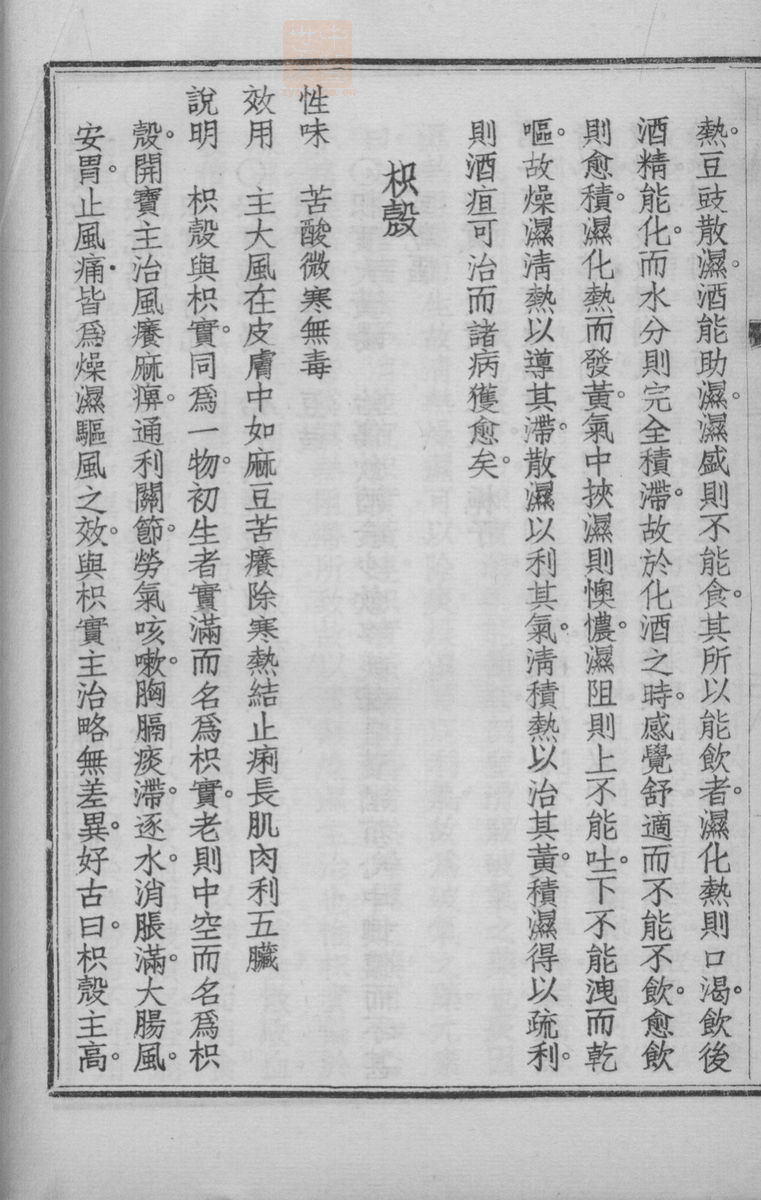 熱。豆豉散濕。酒能助濕。濕盛則不能食。其所以能飲者。濕化熱則口渴。飲後
酒精能化。而水分則完全積滯。故於化酒之時。感覺舒適。而不能不飲。愈飲
則愈積。濕化熱而發黃。氣中挾濕則懊憹。濕阻則上不能吐。下不能洩而乾
嘔。故燥濕淸熱以導其滯。散濕以利其氣。淸積熱以治其黃。積濕得以疏利。
則酒疸可治而諸病獲愈矣。
枳殼
性味　苦酸微寒無毒
效用　主大風在皮膚中如麻豆苦癢除寒熱結止痢長肌肉利五臟
說明　枳殼與枳實。同爲一物。初生者實滿而名爲枳實。老則中空而名爲枳
殼。開寶主治風癢麻痹。通利關節。勞氣咳嗽。胸膈痰滯。逐水。消脹滿。大腸風。
安胃。止風痛。皆爲燥濕驅風之效。與枳實主治略無差異。好古曰。枳殼主高。